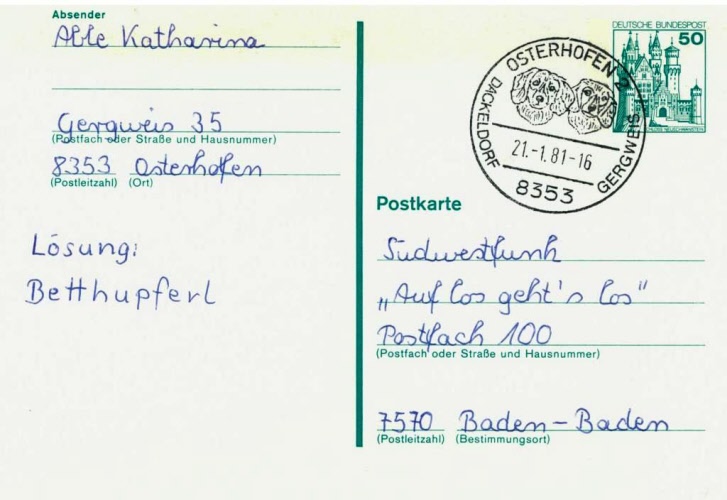 Absender
Able Katharina
Gergweis 35
(Postfach oder Straße und Hausnummer)
8353 Osterhofen
(Postleitzahl) (Ort)
Lösung:
Betthupferl
DEUTSCHE BUNDESPOST
50
OSTERHOFEN 2
DACKELDORF GERGWEIS
21.-1.81-16
8353
Postkarte
Südwestfunk
„Auf los geht's los"
Postfach 100
(Postfach oder Straße und Hausnummer)
7570 Baden-Baden
(Postleitzahl) (Bestimmungsort)